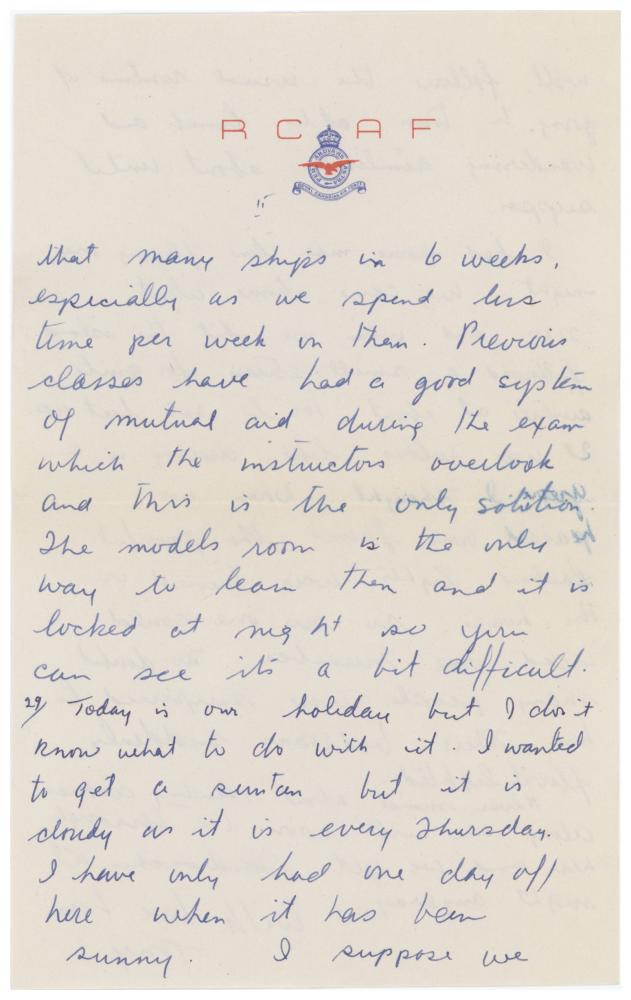 R C A F
PER ARDUA AD ASTRA
ROYAL CANADIAN AIR FORCE
that many ships in 6 weeks,
especially as we spend less
time per week on them. Previous
classes have had a good system
of mutual aid during the exam
which the instructors overlook
and this is the only solution.
The models room is the only
way to learn them and it is
locked at night so you
can see it's a bit difficult.
29/ Today is our holiday but I don't
know what to do with it. I wanted
to get a suntan but it is
cloudy as it is every Thursday.
I have only had one day off
here when it has been
sunny. I suppose we